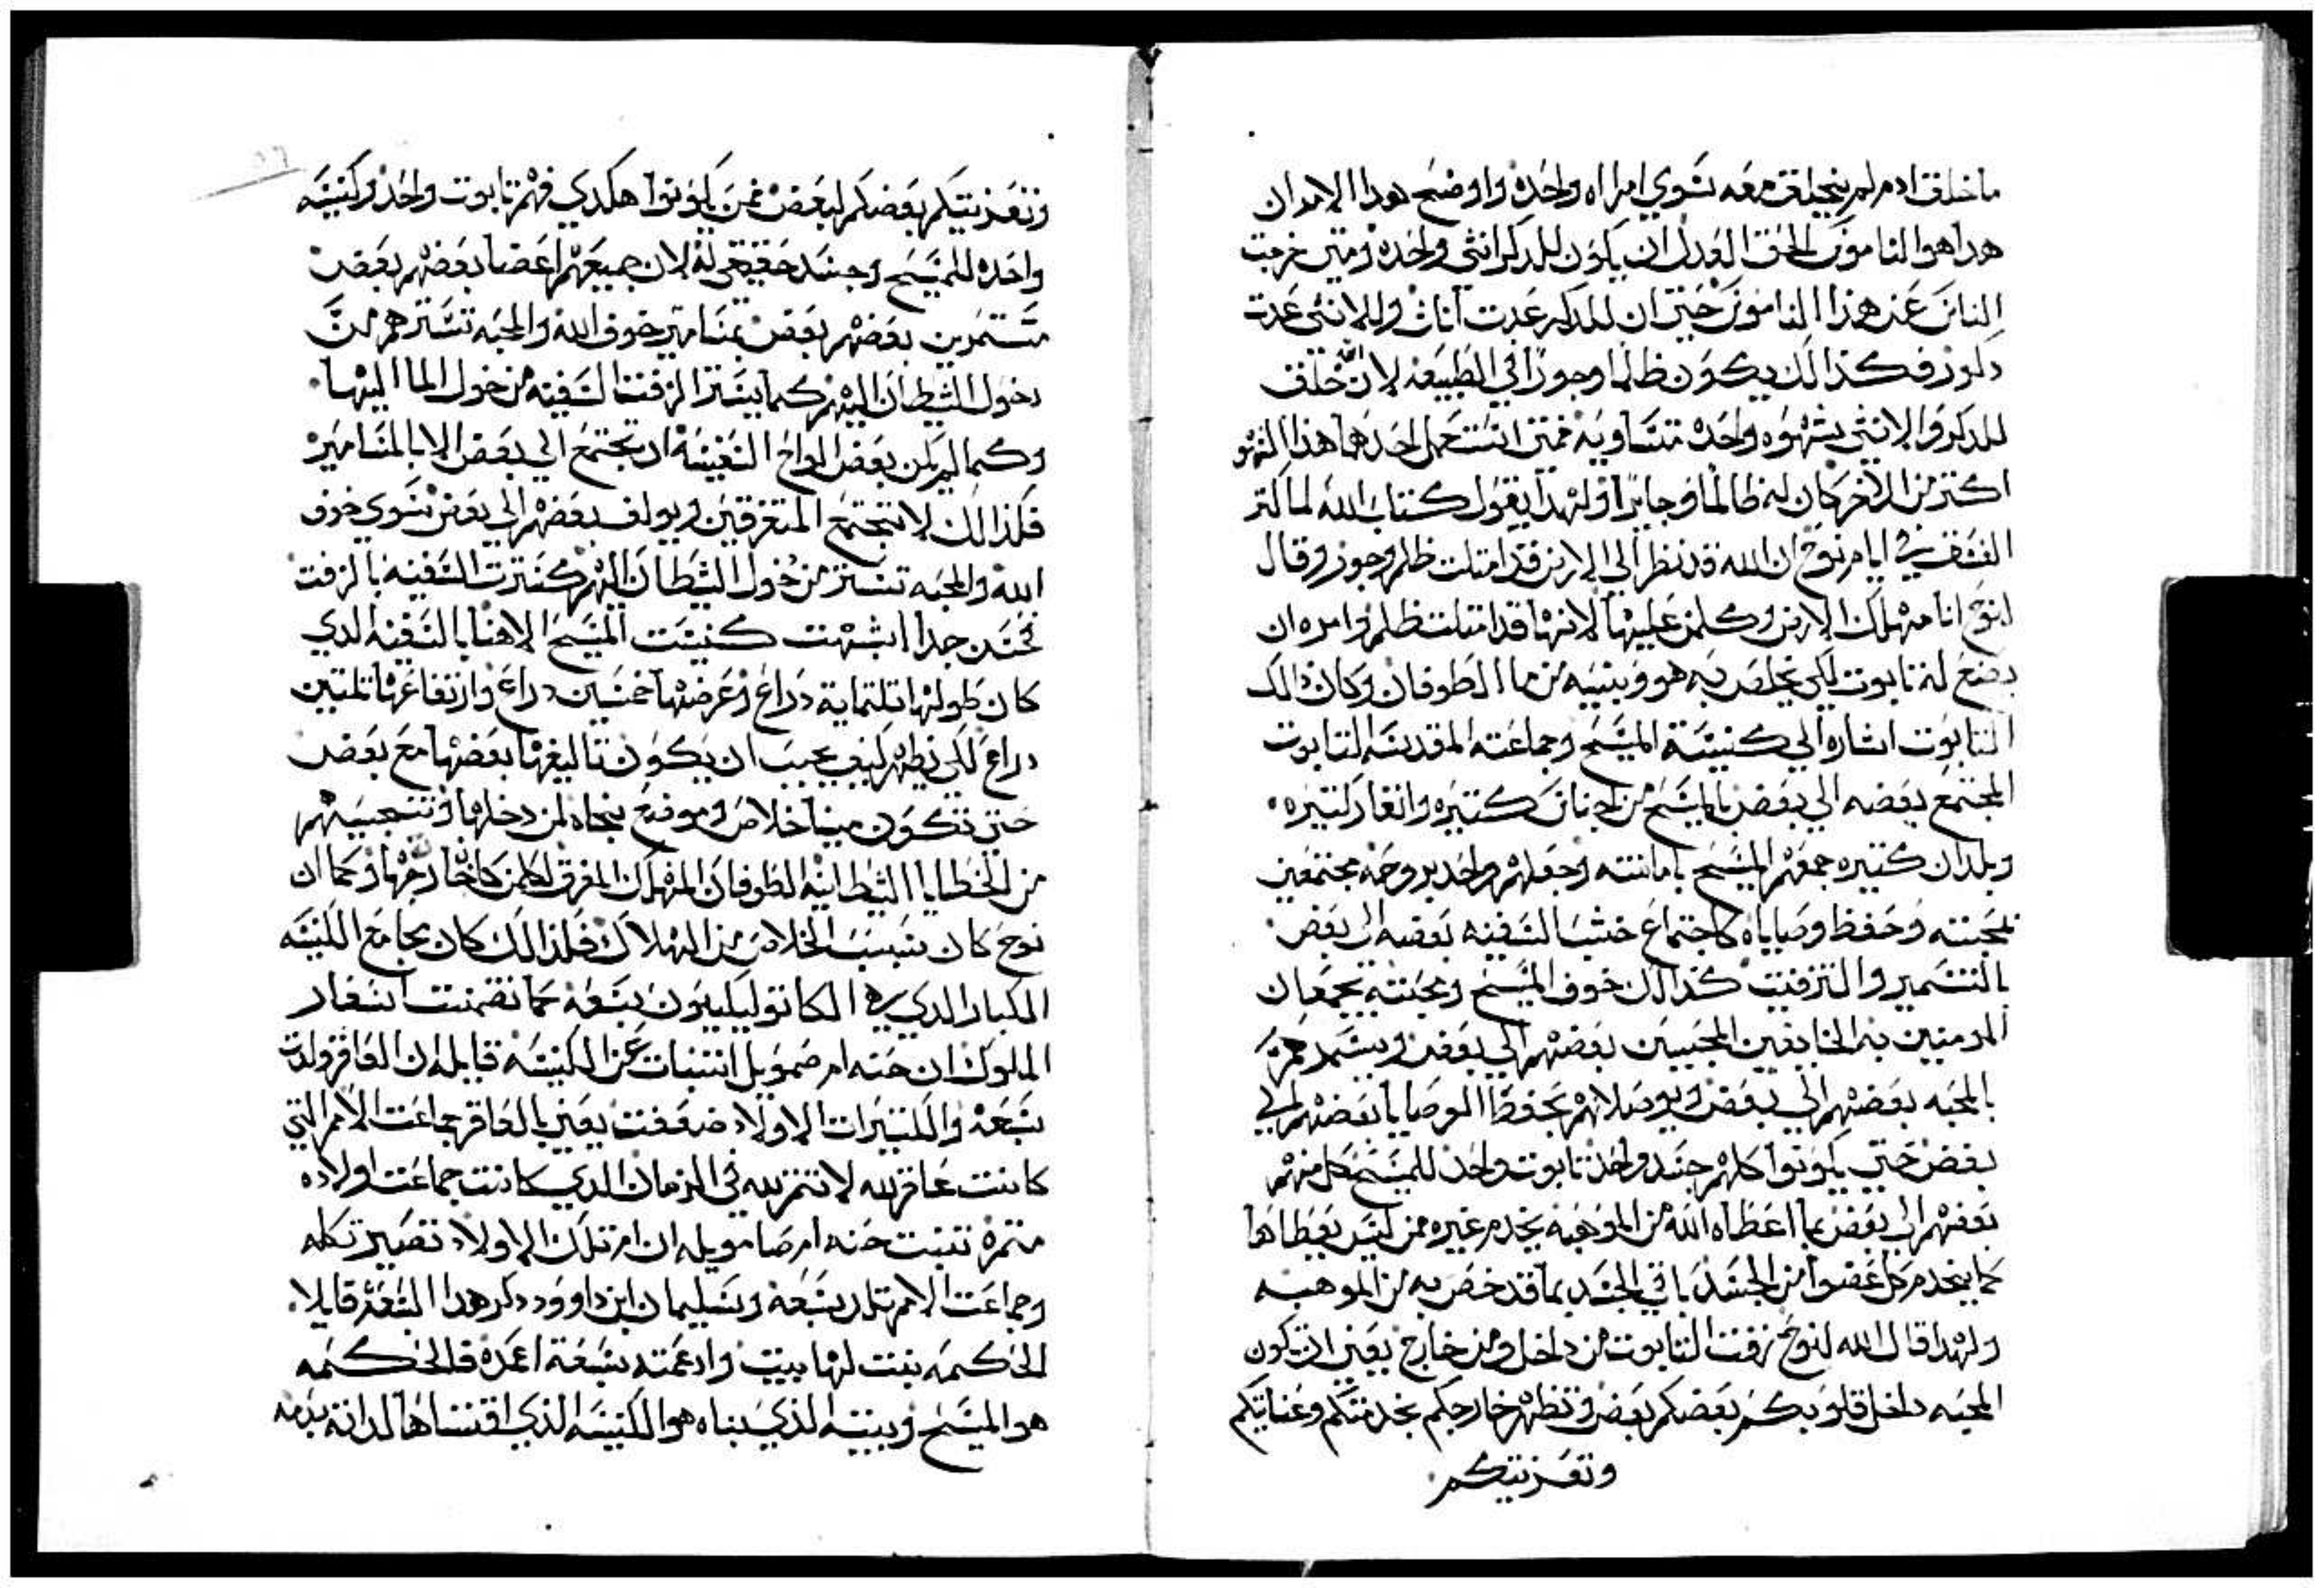 ما خلق ادم لم يخلق معه سوي امراه واحده واوضح بهدا الامر ان
هدا هوا الناموس الحق العدل ان يكون للدكر انثي واحده ومتي خرجت
الناس عن هذا الناموس حتي ان للدكر عدت اناث وللانثي عدت
دكور فكذالك يكون ظالما وجورا في الطبيعه لان الله خلق
للدكر والانثي شهوه واحده متساويه فمتي استعمل احدهما هذا الشهوه
اكتر من الاخر كان له ظالما وجايرا ولهدا يقول كتاب الله لما كتر
الفسق في ايام نوح ان الله قد نظر الي الارض قد امتلت ظلم وجور وقال
لنوح انا مهلك الارض وكلمن عليها لانها قد امتلت ظلم وامره ان
يصنع له تابوت لكي يخلص به هو وبنيه من ما الطوفان وكان دالك
التابوت اشاره الي كنيسة المسيح وجماعته المقدسه التابوت
المجتمع بعضه الي بعض بالمسيح من اجناس كتيره وانفار كتيره
وبلدان كتيره جمعهم المسيح بامانته وجعلهم واحد بروحه مجتمعين
بمحبته وحفظ وصاياه كاجتماع خشب السفينه بعضه الي بعض
بالتسمير والتزفيت كدالك خوف المسيح ومحبته يجمعان
المومنين به الخايفين المحبين بعضهم الي بعض ويسمرهم
بالمحبه بعضهم الي بعض ويوصلانهم بحفظ الوصايا بعضهم الي
بعض حتي يكونوا كلهم جسد واحد تابوت واحد للمسيح كل منهم
بعضهم الي بعض بما اعطاه الله من الموهبه يخدم غيره ممن ليس يعطاها
كما يخدم كل عضوا من الجسد باقي الجسد بما قد خص به من الموهبه
ولهدا قال الله لنوح زفت التابوت من داخل ومن خارج يعني ان تكون
المحبه داخل قلوبكم بعضكم بعض وتظهر خارجكم بخدمتكم وعنايتكم
وتعزيتكم
وتعزيتكم بعضكم لبعض فمن يكونوا هكدي فهم تابوت واحد وكنيسه
واحده للمسيح وجسد حقيقي له لان جميعهم اعضا بعضهم بعض
مستمرين بعضهم بعض بمسامير خوف الله والمحبه تسترهم من
دخول الشيطان اليهم كما يستر الزفت السفينه من دخول الما اليها
وكما لم يكن بعض الواح السفينه ان تجتمع الي بعض الا بالمسامير
فكذالك لا تجتمع المتفرقين ويولف بعضهم الي بعض سوي خوف
الله والمحبه تستر من دخول الشيطان اليهم كسترت السفينه بالزفت
فحسن جدا اشبهت كنيست المسيح الاهنا بالسفينه الدي
كان طولها تلتماية دراع وعرضها خمسين دراع وارتفاعها تلتين
دراع لكي نظهر كيف يجب ان يكون تاليفها بعضها مع بعض
حتي تكون مينا خلاص وموضع نجاه لمن دخلها وتنجيهم
من الخطايا الشيطانيه الطوفان المهلك المغرق لكلمن كان خارج منها وكما ان
نوح كان سبب الخلاص من الهلاك فكذالك كان بجامع الكنيسه
الكبار الدي هي الكاتوليكيون سبعه كما تضمنت اسفار
الملوك ان حنه ام صمويل انتبات عن الكنيسه قايله ان العاقر ولدت
سبعه والكتيرات الاولاد ضعفت يعني بالعاقر جماعت الامم التي
كانت عاقر لله لا تتمر لله في الزمان الدي كانت جماعت اولاده
متمره تنبت حنه ام صامويل ان ام تلك الاولاد تصير تكله
وجماعت الامم تلد سبعه وسليمان ابن داوود دكر هدا السبعه قايلا
الحكمه بنت لها بيت وادعمته بسبعة اعمده فالحكمه
هو المسيح وبيته الذي بناه هو الكنيسه الذي اقتناها لداته بدمه